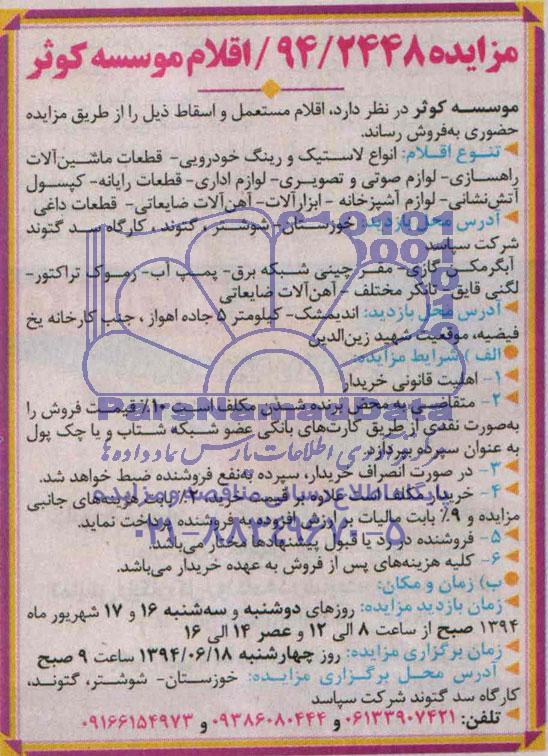 مزایده ۹۴/۲۴۴۸/ اقلام موسسه کوثر
موسسه کوثر در نظر دارد، اقلام مستعمل و اسقاط ذیل را از طریق مزایده
حضوری به‌فروش رساند.
تنوع اقلام: انواع لاستیک و رینگ خودرویی- قطعات ماشین‌آلات
راهسازی- لوازم صوتی و تصویری- لوازم اداری- قطعات رایانه- کپسول
آتش‌نشانی- لوازم آشپزخانه - ابزارآلات- آهن‌آلات ضایعاتی- قطعات داغی
آدرس محل بازدید: خوزستان- شوشتر، گتوند، کارگاه سد گتوند
شرکت سپاسد
آبگرمکن گازی- مقر چینی شبکه برق- پمپ آب- رموک تراکتور-
لگنی قایق- تانکر مختلف - آهن‌آلات ضایعاتی
آدرس محل بازدید: اندیمشک- کیلومتر ۵ جاده اهواز، جنب کارخانه یخ
فیضیه، موقعیت شهید زین‌الدین
الف) شرایط مزایده:
۱- اهلیت قانونی خریدار
۲- متقاضی به محض برنده شدن مکلف است ۱۰٪ قیمت فروش را
به‌صورت نقدی از طریق کارت‌های بانکی عضو شبکه شتاب و یا چک پول
به عنوان سپرده بپردازد.
۳- در صورت انصراف خریدار، سپرده به‌نفع فروشنده ضبط خواهد شد.
۴- خریدار مکلف است علاوه بر قیمت خرید ۳٪ بابت هزینه‌های جانبی
مزایده و ۹٪ بابت مالیات بر ارزش افزوده به فروشنده پرداخت نماید.
۵- فروشنده در رد یا قبول پیشنهادها مختار می‌باشد.
۶- کلیه هزینه‌های پس از فروش به عهده خریدار می‌باشد.
ب) زمان و مکان:
زمان بازدید مزایده: روزهای دوشنبه و سه‌شنبه ۱۶ و ۱۷ شهریور ماه
۱۳۹۴ صبح از ساعت ۸ الی ۱۲ و عصر ۱۴ الی ۱۶
زمان برگزاری مزایده: روز چهارشنبه ۱۳۹۴/۰۶/۱۸ ساعت ۹ صبح
آدرس محل برگزاری مزایده: خوزستان- شوشتر، گتوند،
کارگاه سد گتوند شرکت سپاسد
تلفن: ۰۶۱۳۳۹۰۷۴۲۱ و ۰۹۳۸۶۰۸۰۴۴۴ و ۰۹۱۶۶۱۵۴۹۷۳
ParsNamadData
پایگاه اطلاع رسانی مناقصه و مزایده
۰۲۱-۸۸۳۴۹۶۷۰-۵